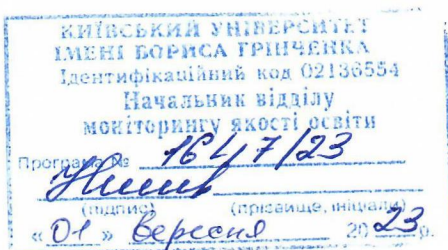 КИЇВСЬКИЙ УНІВЕРСИТЕТ
ІМЕНІ БОРИСА ГРІНЧЕНКА
Ідентифікаційний код 02136554
Начальник відділу
моніторингу якості освіти
Програма № 1647/23
(підпис) (прізвище, ініціали)
«01» вересня 2023р.